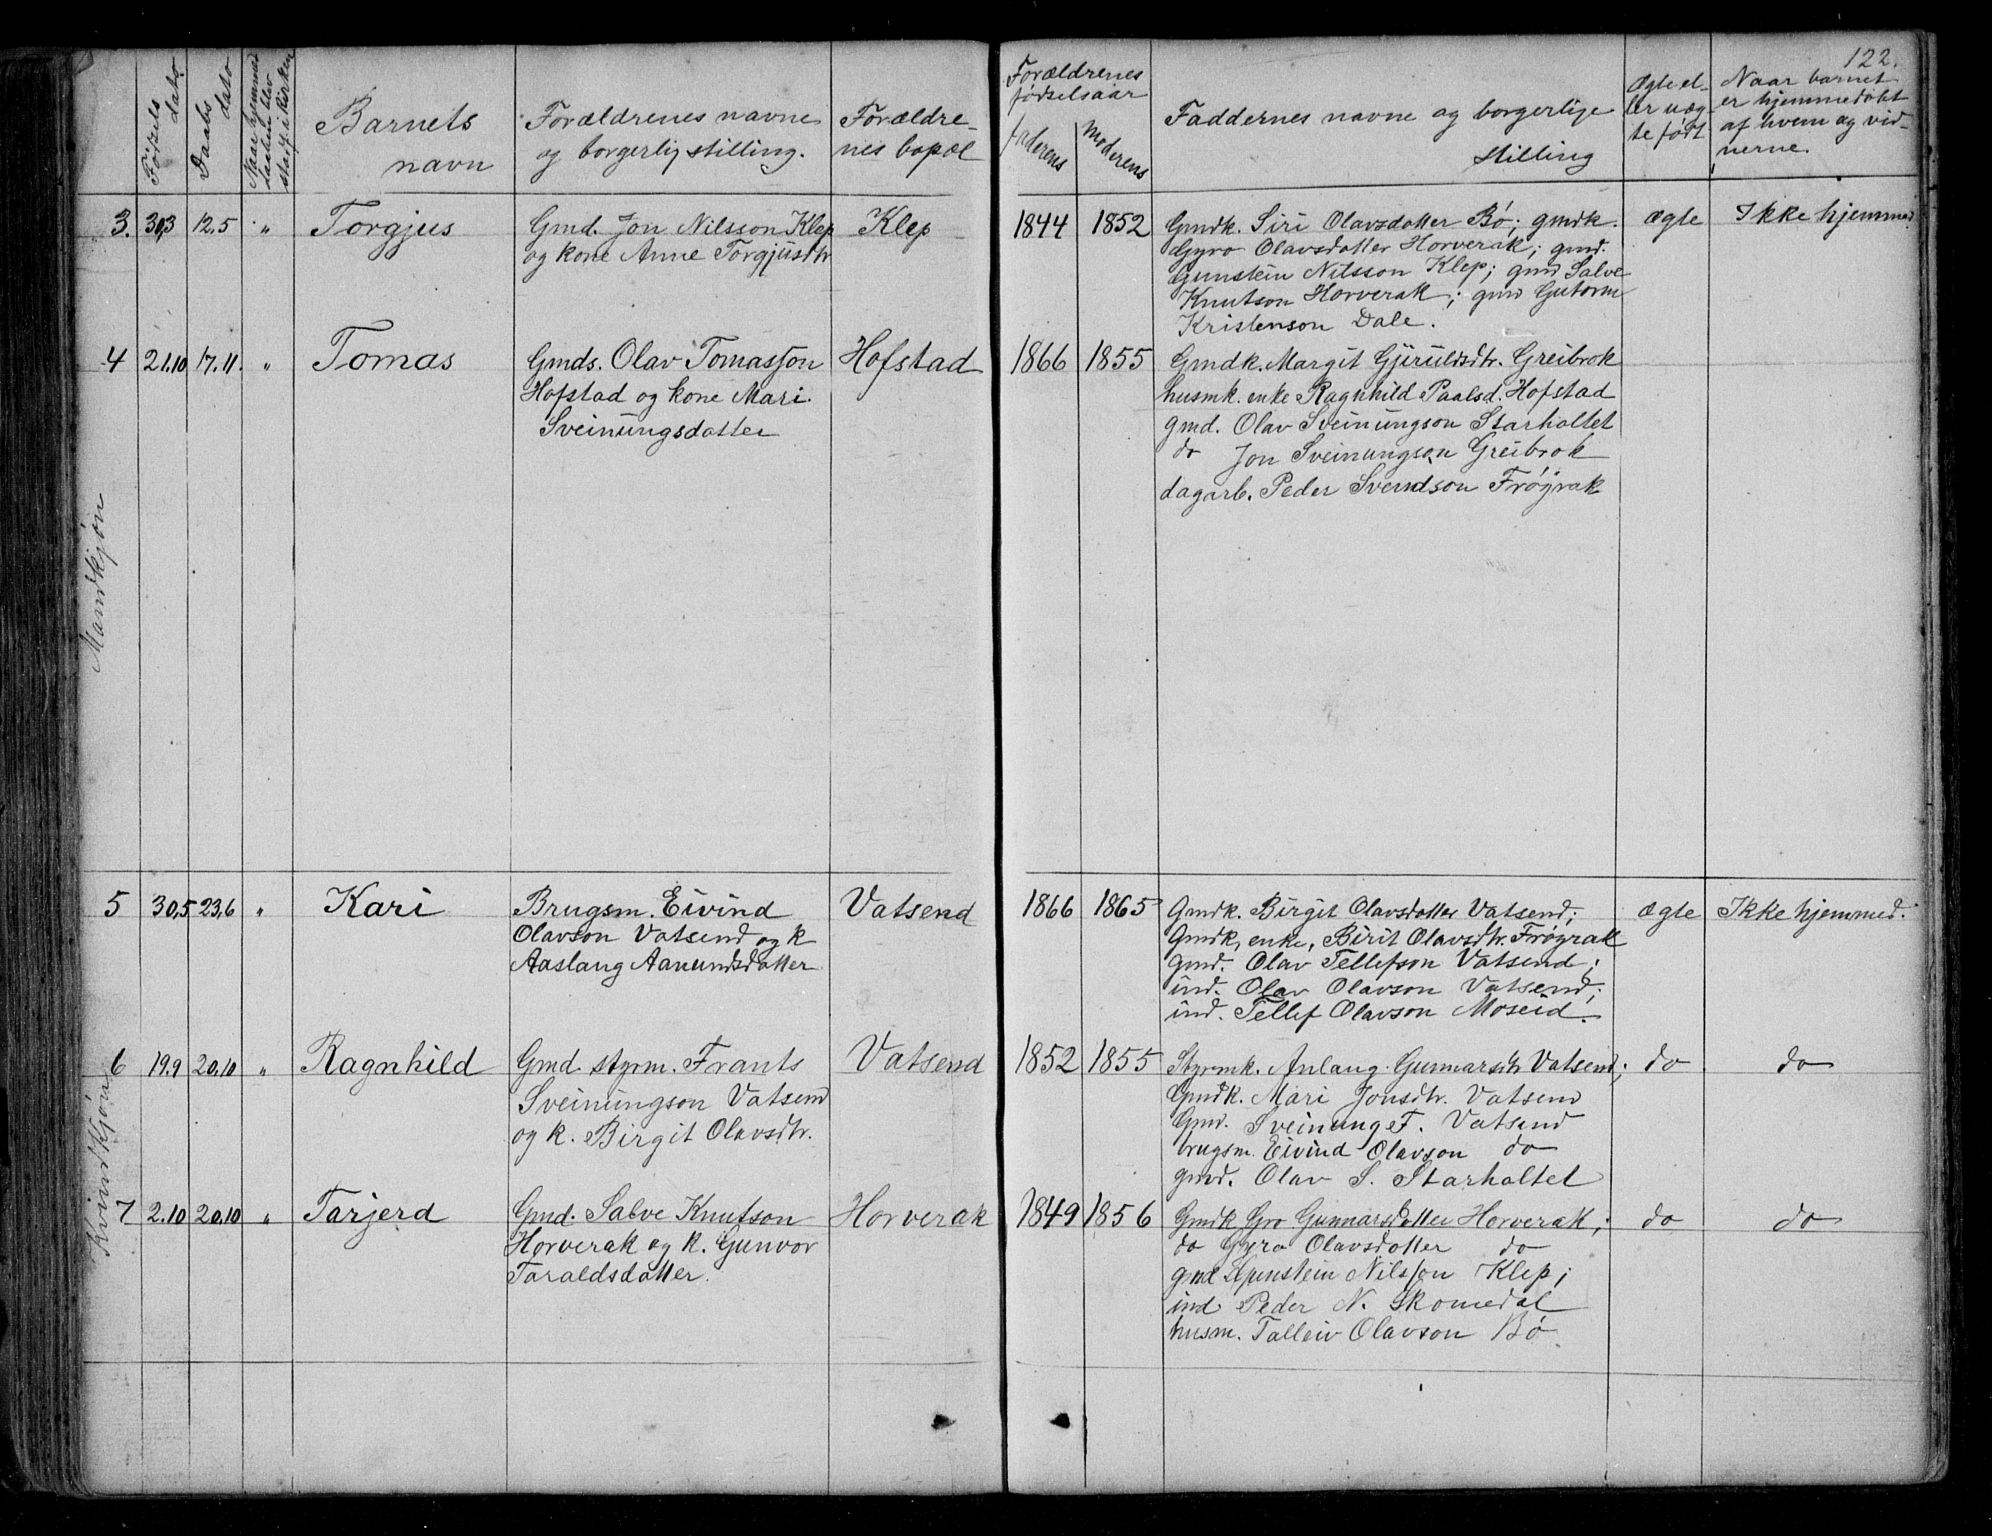 122.
Fødsels dato
Daabs dato
Naar hjemmed. daaben blev stadf. i kirken
Barnets navn
Forældrenes navne og borgerlig stilling.
Forældrenes bopæl
Forældrenes fødselsaar
faderens
moderens
Faddernes navne og borgerlige stilling
Ægte eller uægte født
Naar barnet er hjemmedøbt af hvem og vidnerne.
Mandkjøn
3. 30,3 12.5 " Torgjus
Gmd. Jon Nilsson Klep
og kone Anne Torgjusdtr
Klep
1844 1852
Gmdk. Siri Olavsdatter Bø; gmdk.
Gyro Olavsdatter Horverak; gmd.
Gunstein Nilsson Klep; gmd Salve
Knutson Horverak; gmd Gutorm
Kristenson Dale.
ægte Ikke hjemmed.
4 21.10 17.11. " Tomas
Gmds. Olav Tomasson
Hofstad og kone Mari.
Sveinungsdatter
Hofstad
1866 1855
Gmdk. Margit Gjeruldsdtr. Greibrok
husmk. enke Ragnhild Paalsd. Hofstad
gmd. Olav Sveinungson Starholtet
do Jon Sveinungson Greibrok
dagarb. Peder Svendson Frøyrak
Kvindkjøn
5 30,5 23,6 " Kari
Brugsm. Eivind
Olavson Vatsend og k
Aaslaug Aanundsdatter
Vatsend
1866 1865
Gmdk. Birgit Olavsdatter Vatsend;
Gmdk, enke, Birit Olavsdtr. Frøyrak
gmd. Olav Tellefson Vatsend;
ind. Olav Olavson Vatsend;
ind. Tellef Olavson Moseid.
ægte Ikke hjemmed.
6 19.9 20.10 " Ragnhild
Gmd. styrm. Frants
Sveinungson Vatsend
og k. Birgit Olavsdtr.
Vatsend
1852 1855
Styrmk. Anlaug Gunnarsdtr Vatsend;
Gmdk. Mari Jonsdtr. Vatsend
Gmd. Sveinung F. Vatsend
brugsm. Eivind Olavson do
gmd. Olav S. Starholtet
do do
7 2.10 20.10 " Tarjerd
Gmd. Salve Knutson
Horverak og k. Gunvor
Taraldsdatter.
Horverak
1849 1856
Gmdk Gro Gunnarsdatter Horverak;
do Gyro Olavsdatter do
gmd Gunstein Nilsson Klep;
ind Peder N. Skomedal
husm. Talleiv Olavson Bø
do do